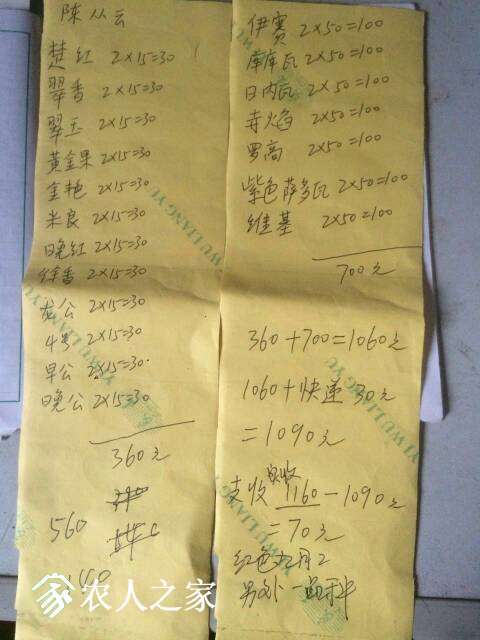 陈从云
楚红 2×15=30
翠香 2×15=30
翠玉 2×15=30
黄金果 2×15=30
金艳 2×15=30
米良 2×15=30
晚红 2×15=30
徐香 2×15=30
龙公 2×15=30
4号 2×15=30
早公 2×15=30
晚公 2×15=30
360元
560
伊赛 2×50=100
库库瓦 2×50=100
日内瓦 2×50=100
寺焰 2×50=100
罗高 2×50=100
紫色萨多瓦 2×50=100
维基 2×50=100
700元
360+700=1060元
1060+快递30元
=1090元
支收 1160-1090元
=70元
红色九月2
另外一品种
农人之家
WULIANGYE